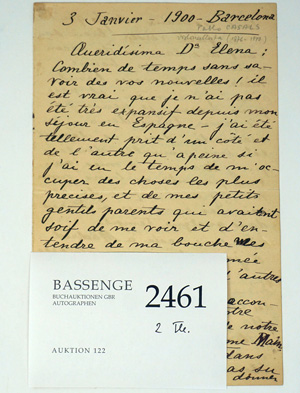 3 Janvier - 1900 - Barcelona
Pablo CASALS
Queridísima Da Elena;
Combien de temps sans sa-
voir des vos nouvelles! il
est vrai que je n'ai pas
été très expansif depuis mon
séjour en Espagne - j'ai été
tellement prit d'un coté et
de l'autre qu'apeine si
j'ai eu le temps de m'oc-
cuper des choses les plus
precises, et de mes petits
gentils parents qui avaient
soif de me voir et d'en-
tendre de ma bouche
d'autres
notre
dans
donner
BASSENGE
BUCHAUKTIONEN GBR
AUTOGRAPHEN
2461
AUKTION 122